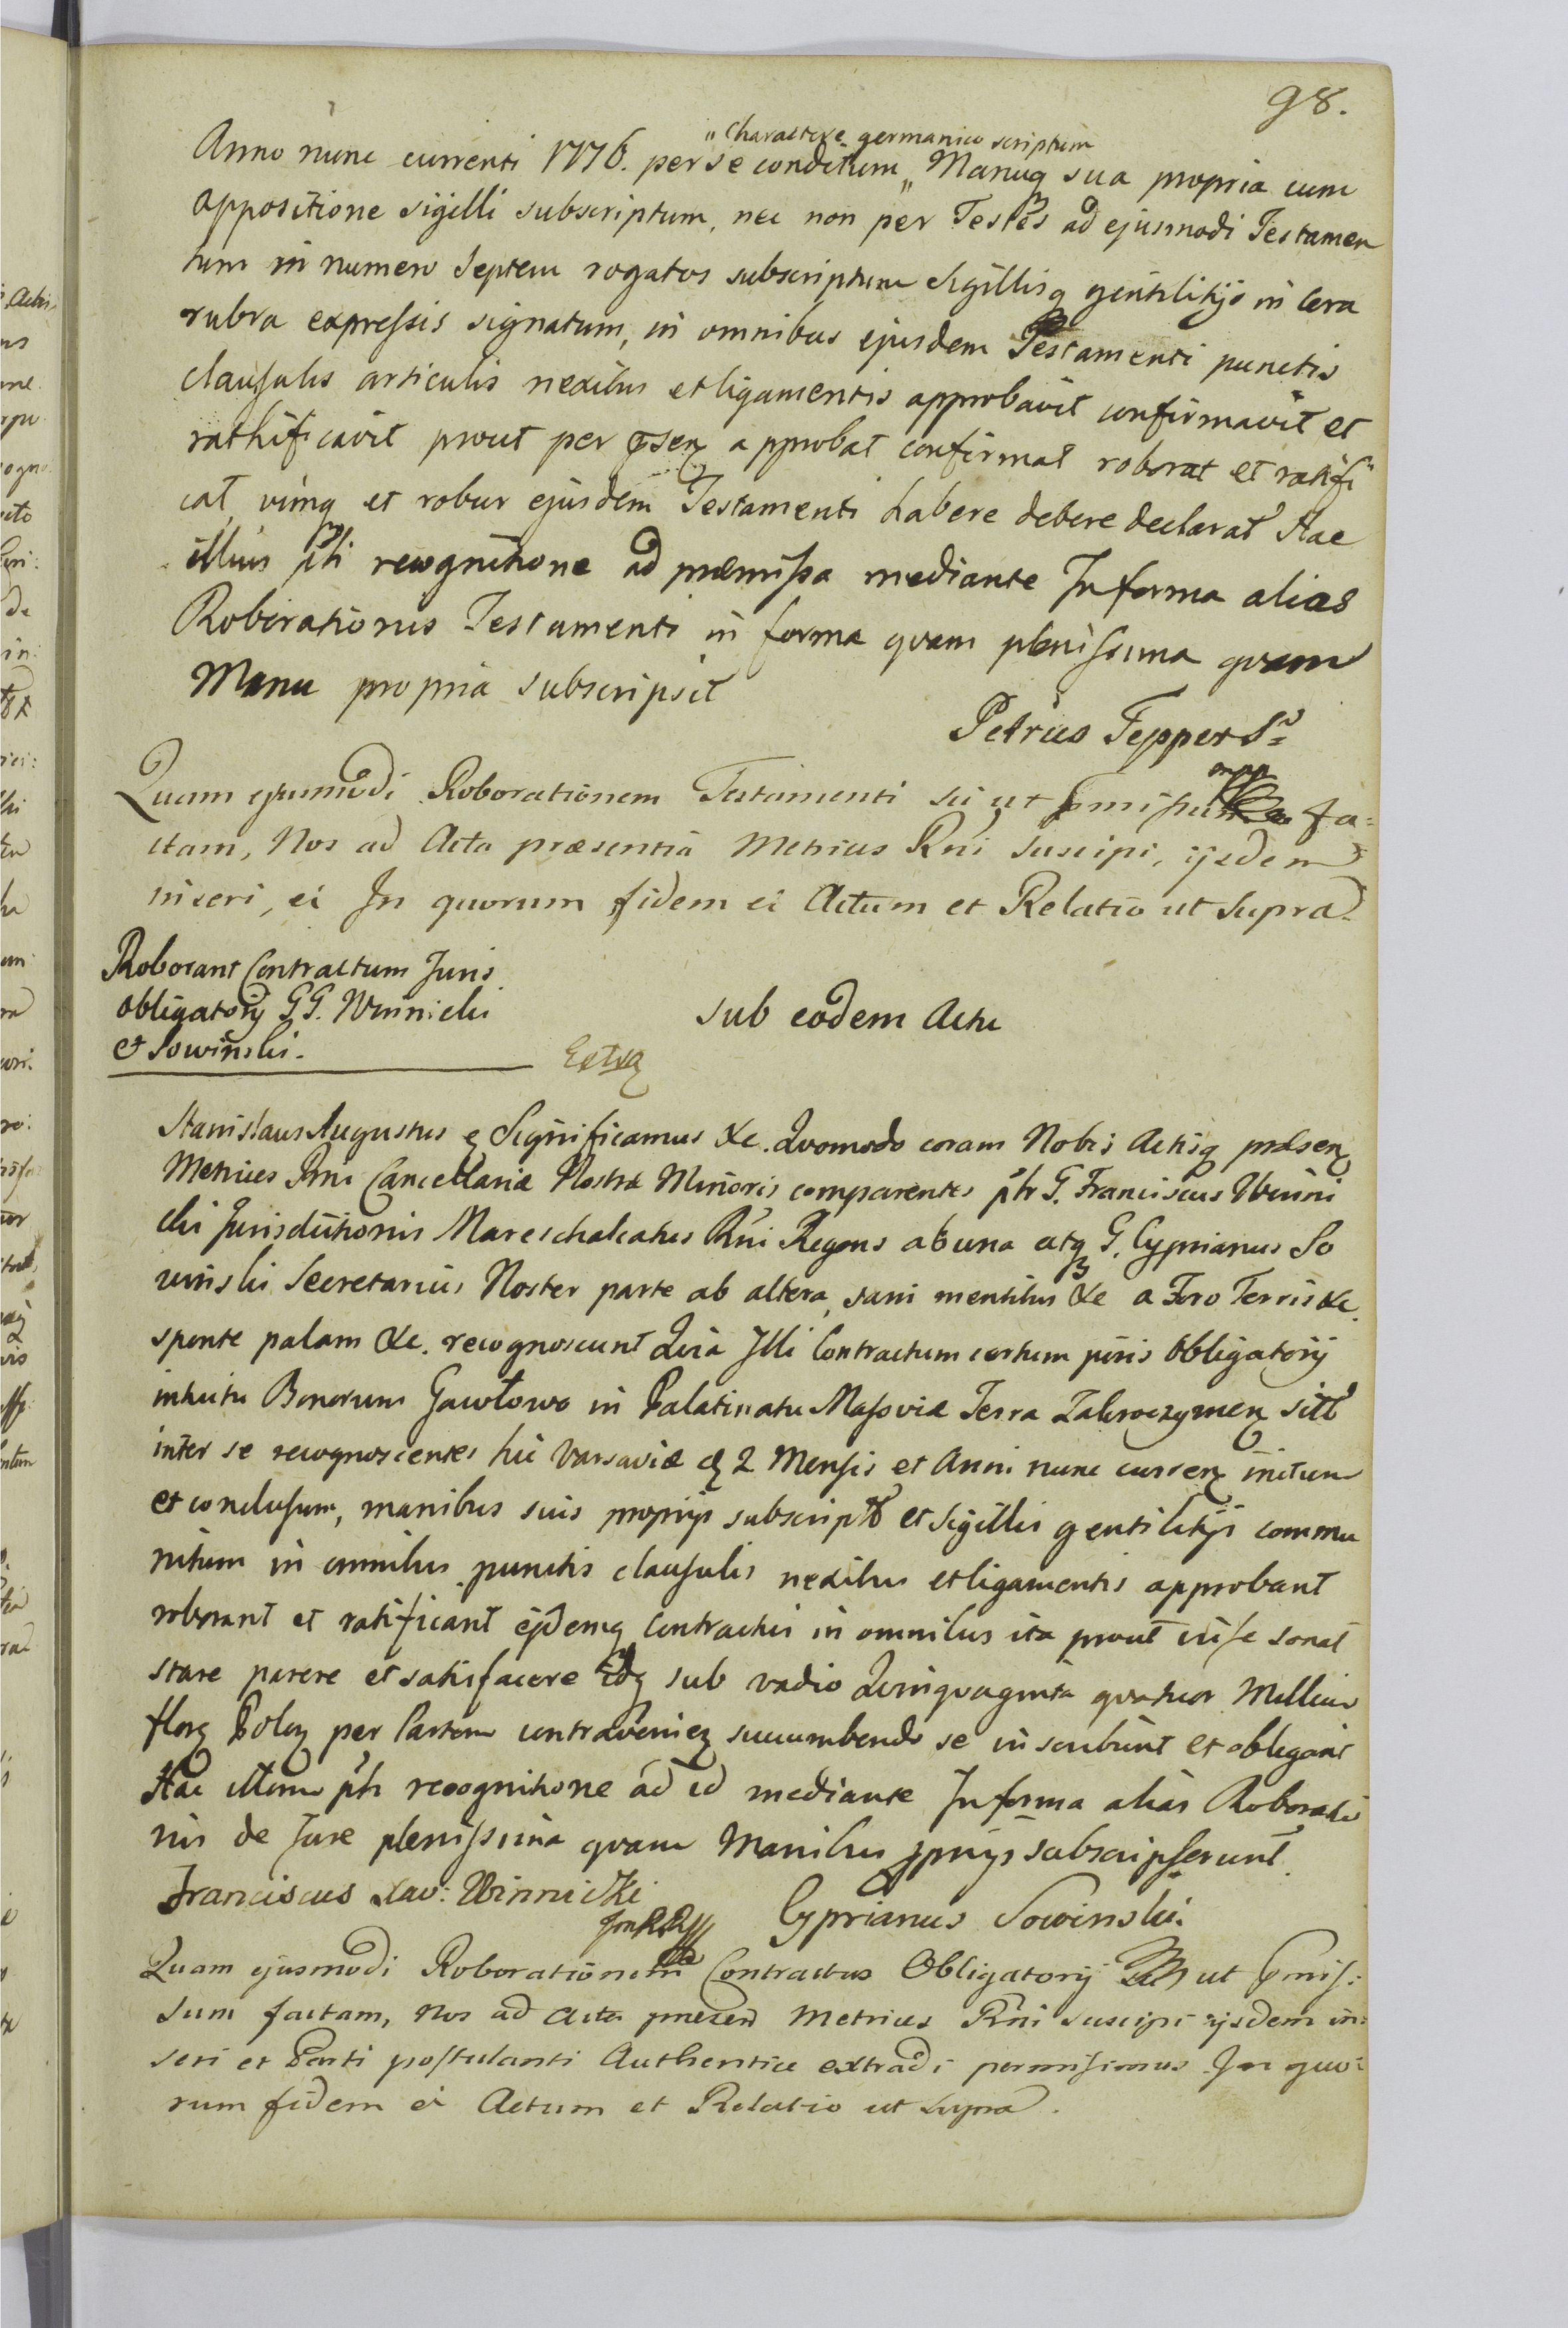 98.
"Charactere germanico scriptum
Anno nunc currenti 1776. per se conditum „ Manuq sua propria cum
appositione sigilli subscriptum, nec non per Testes ad ejusmodi Testamen
tum in numero Septem rogatos subscriptum Sigillisq gentilitijs in Cera
rubra expressis signatum, in omnibus ejusdem Testamenti punctis
clausulis articulis nexibus et ligamentis approbavit confirmavit et
rathificavit prout per pnsen approbat confirmat roborat et ratifi
cat, vimq et robur ejusdem Testamenti habere debere declarat Hac
illius pti recognitione ad præmissa mediante In forma alias
Roborationis Testamenti in forma quam plenissima quam
Manu propria subscripsit
Petrus Tepper Sr
mpp
Quam ejusmodi Roborationem Testamenti sui ut pmissum fa=
ctam, Nos ad Acta præsentia Metrices Rni suscipi, ijsdem
inseri, ei In quorum fidem ei Actum et Relatio ut Supra.
Roborant Contractum Juris
obligatorij GG. Winnicki
et Sowinski.
Sub eodem Actu
Extra
Stanislaus Augustus ę Significamus &c. Quomodo coram Nobis Actisq præsen
Metrices Rni Cancellariæ Nostræ Minoris comparentes ptr G. Franciscus Winni
cki Jurisdictionis Mareschalcatus Rni Regens ab una atq G. Cyprianus So
winski Secretarius Noster parte ab altera, sani mentibus &c a Foro Terris &c.
sponte palam &c. recognoscunt Quia Illi Contractum certum juris Obligatorij
intuitu Bonorum Gawłowo in Palatinatu Masoviæ Terra Zakroczymen sitt
inter se recognoscentes hic Varsaviæ d 2 Mensis et Anni nunc curren initum
et conclusum, manibus suis proprijs subscriptū et Sigillis gentilitijs commu
nitum in omnibus punctis clausulis nexibus et ligamentis approbant
roborant et ratificant ejdemq Contractui in omnibus ita prout in se sonat
stare parere et satisfacere idq sub vadio Quinquaginta quatuor Millium
flor Polon per Partem contravenien succumbendo se inscribunt et obligant
Hac illorum pti recognitione ad id mediante In forma alias Roboratio
nis de Jure plenissima quam Manibus pprijs subscripserunt.
Franciscus Xav: Winnicki
Cyprianus Sowinski.
Quam ejusmodi Roborationem Contractus Obligatorij ut pmis:
sum factam, Nos ad Acta præsen Metrices Rni suscipi ijsdem in=
seri et Parti postulanti Authentice extradi permisimus In quo:
rum fidem ei Actum et Relatio ut Supra.